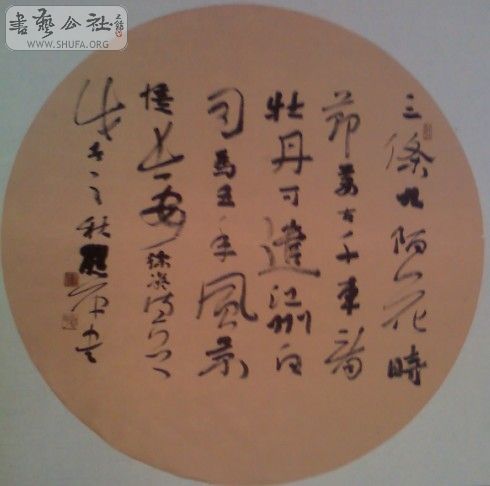 書藝公社
WWW.SHUFA.ORG
三條九陌花時
節萬千車看
牡丹遣江州白
司馬五年風景
憶長安徐凝詩
戊子之秋書